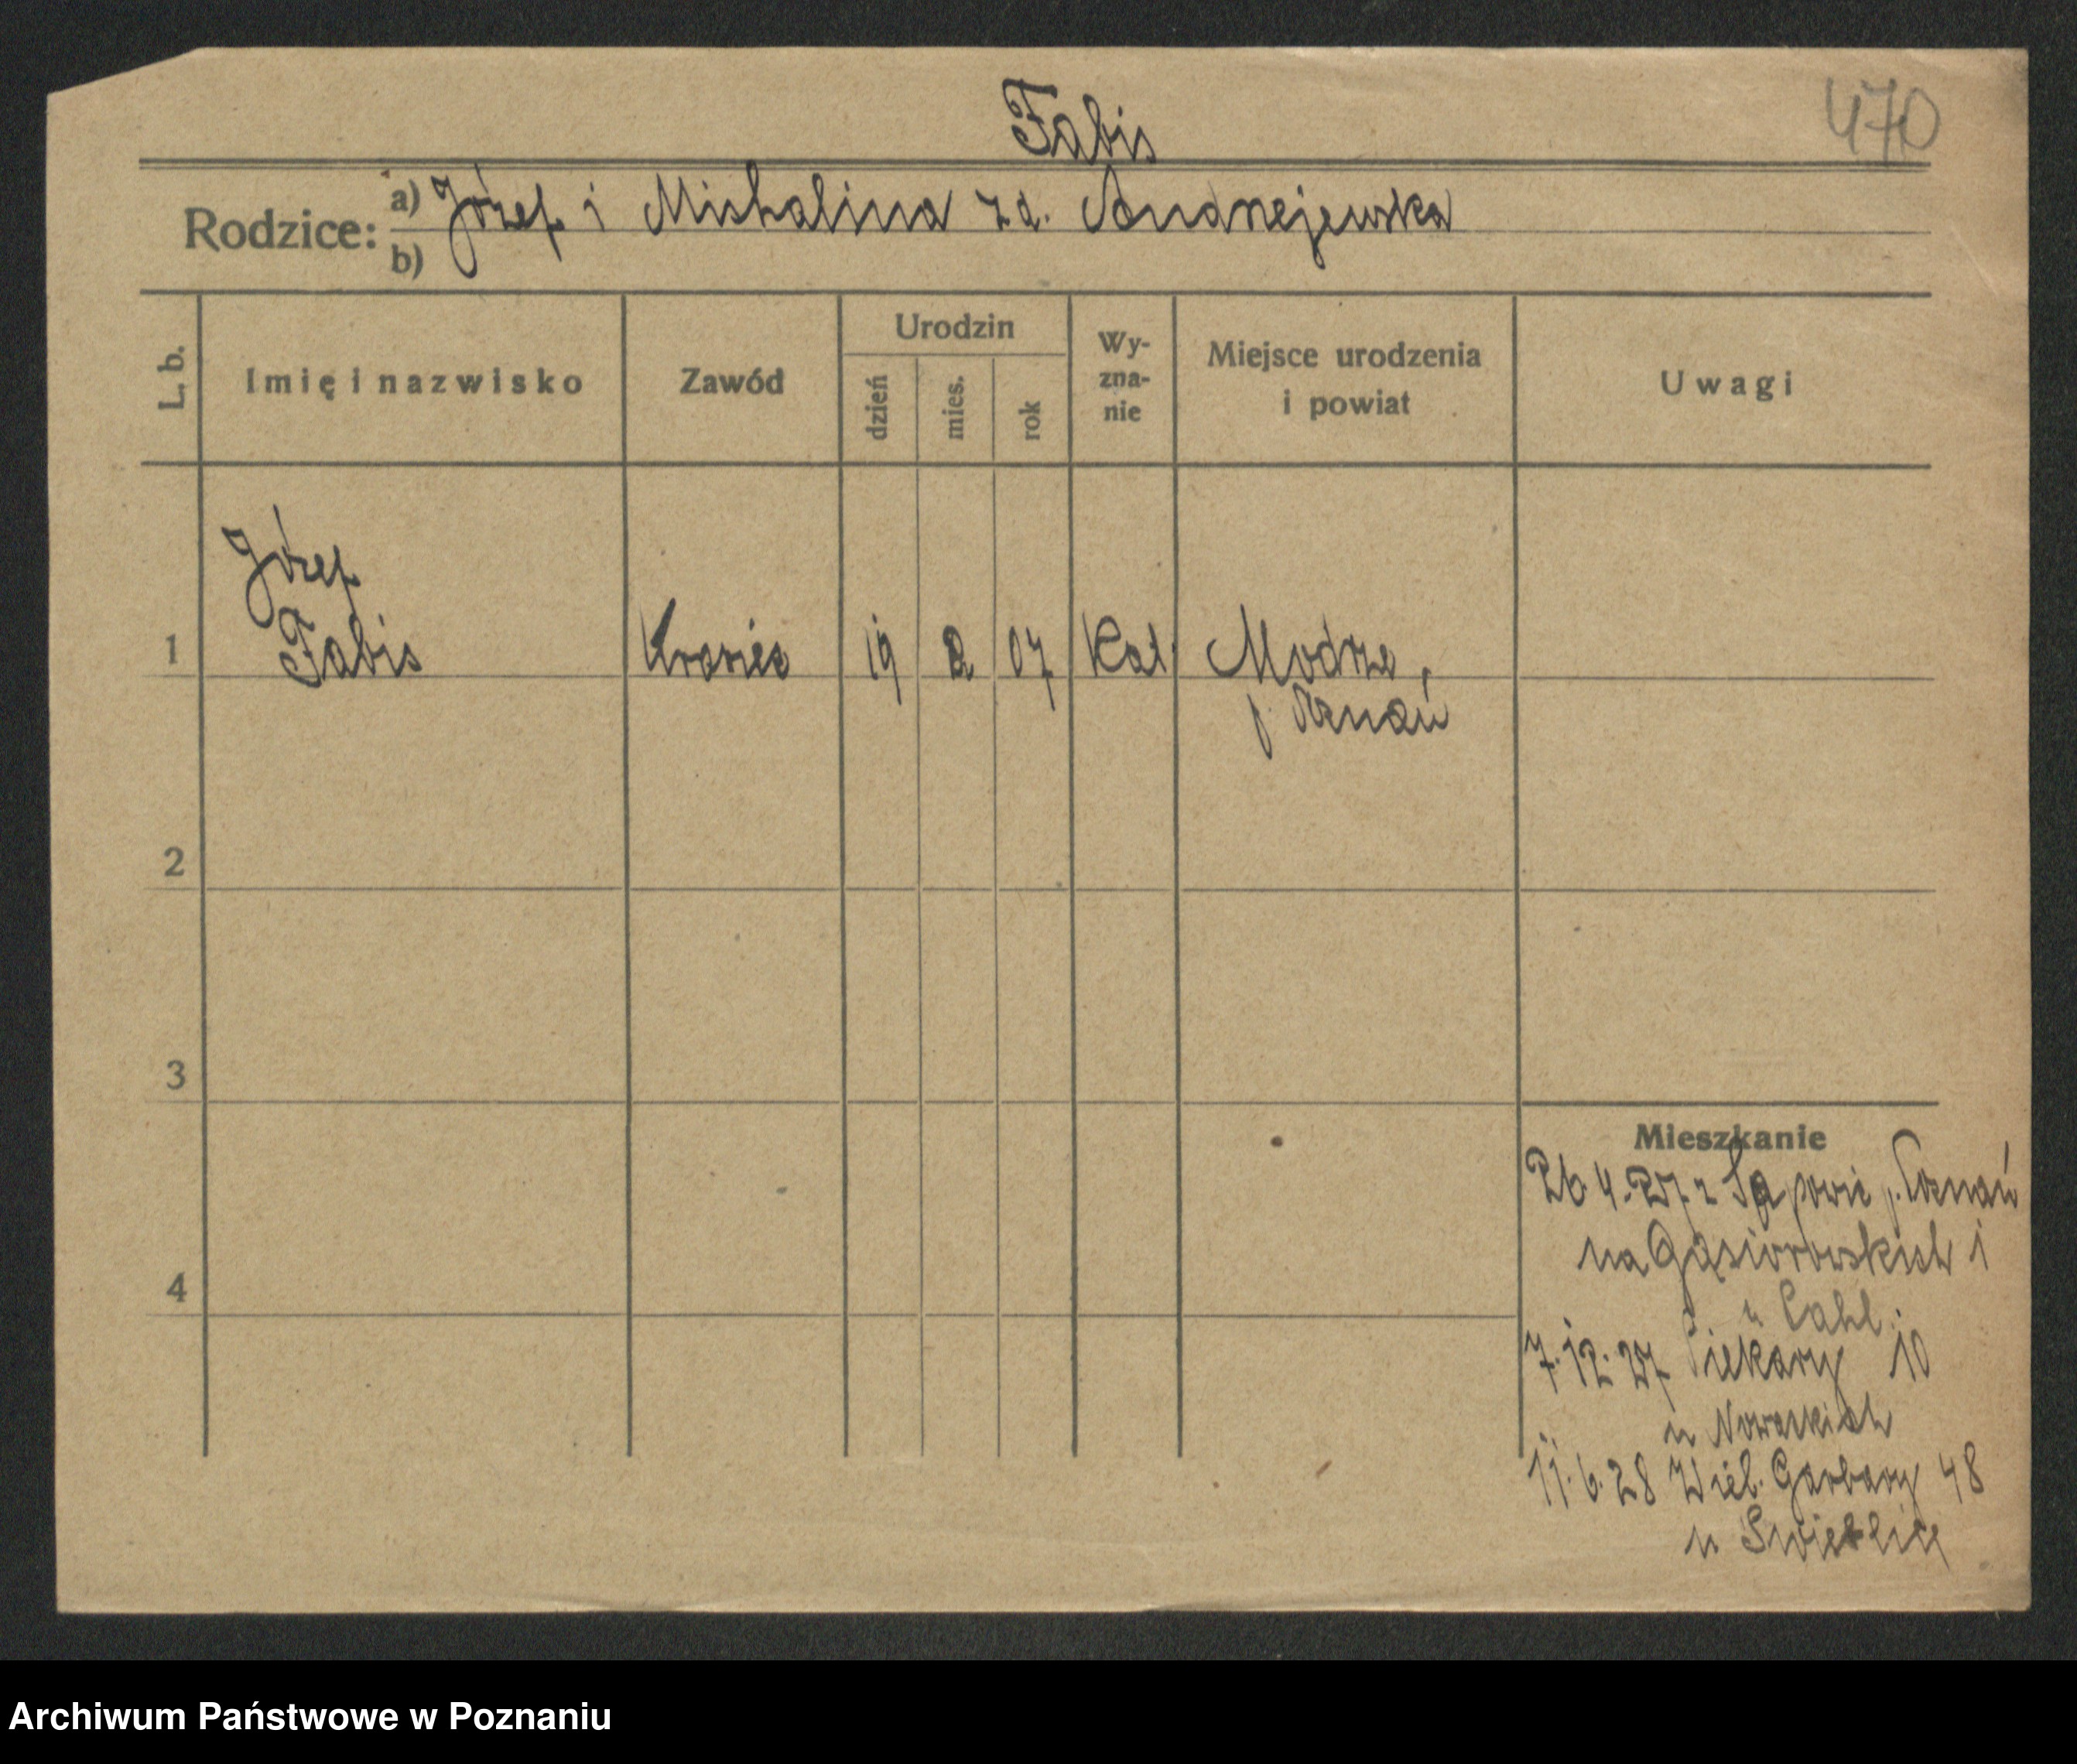 Fabis
470
Rodzice:
a) Józef i Michalina z d. Andrzejewska
b)
L. b.
Imię i nazwisko
Zawód
Urodzin
dzień
mies.
rok
Wy-
zna-
nie
Miejsce urodzenia
i powiat
Uwagi
Józef
1 Fabis Krawiec 19 2 07 Kat. Modrze,
p. Poznań
2
3
4
Mieszkanie
26.4.27 z powie p. Poznań
na Gąsiorowskich 1
u
7.12.27 Piekary 10
u Nowackich
11.6.28 Wiel. Garbary 48
u Swietlicy
Archiwum Państwowe w Poznaniu